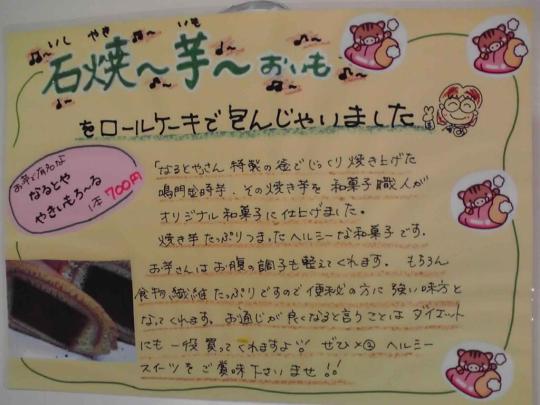 いし やき いも
石焼～芋～おいも
をロールケーキで包んじゃいました
お芋で有名な
なるとや
やきいもろ～る
1本700円
「なるとやさん特製の釜でじっくり焼き上げた
鳴門金時芋、その焼き芋を和菓子職人が
オリジナル和菓子に仕上げました。
焼き芋たっぷりつまったヘルシーな和菓子です。
お芋さんはお腹の調子も整えてくれます。もちろん
食物繊維たっぷりですので便秘の方に強い味方と
なってくれます。お通じが良くなると言うことはダイエット
にも一役買ってくれますよ!! ぜひ×②ヘルシー
スイーツをご賞味下さいませ!!